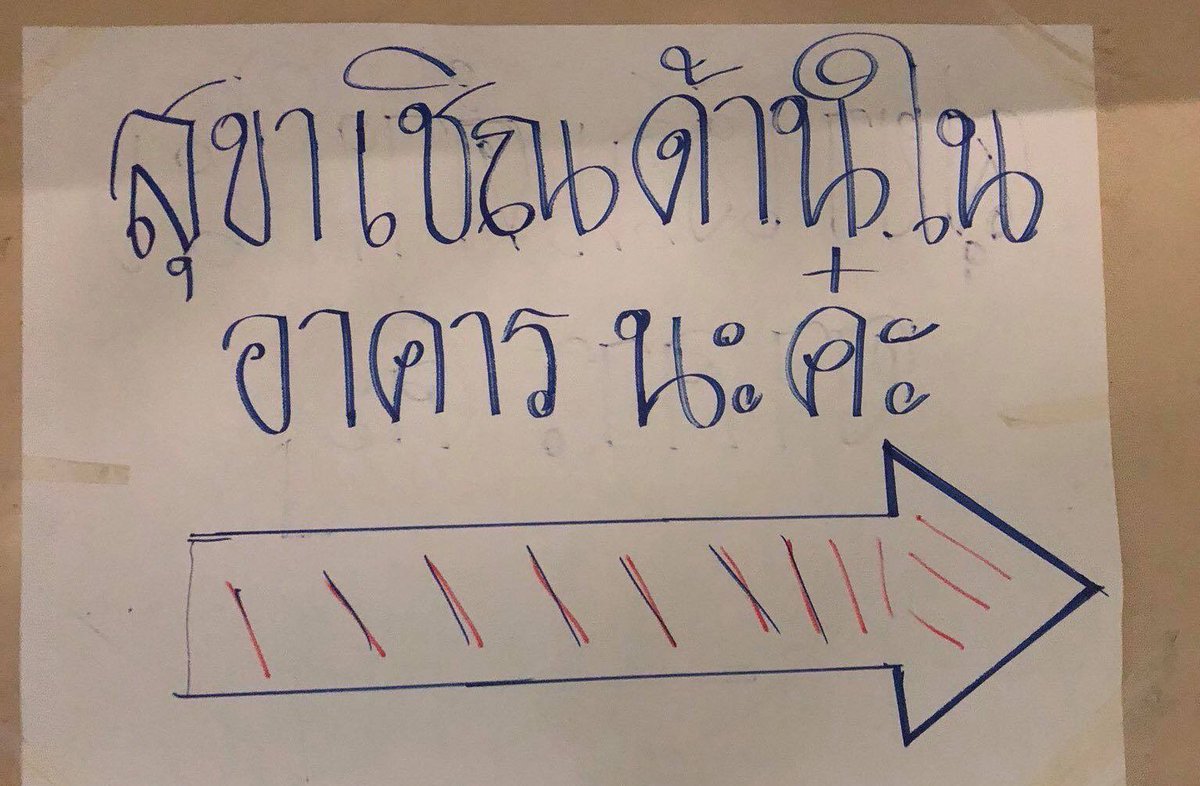 สุขาเชิณด้านใน
อาคาร นะค๋ะ